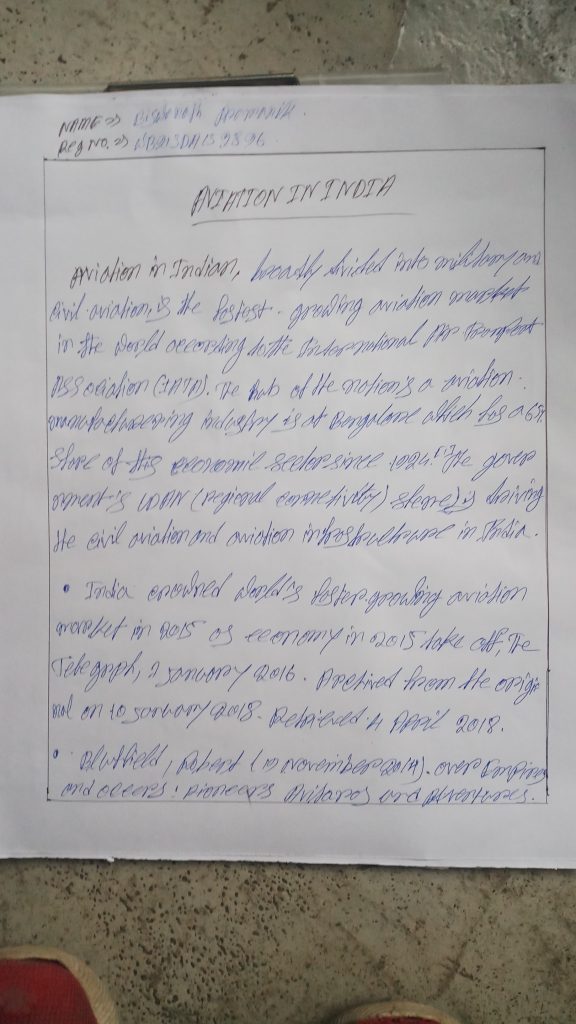 NAME⇒
Reg NO.⇒
AVIATION IN INDIA
Aviation in Indian, broadly divided into military and
civil aviation, is the fastest - growing aviation market
in the world according to the International Air Transport
Association (IATA). The hub of the nation's aviation
manufacturing industry is at Bangalore which has a 65%
share of this economic sector since 1924.[1] The gover
nment's UDAN (regional connectivity) scheme) is driving
the civil aviation and aviation infrastructure in India.
• India crowned world's faster growing aviation
market in 2015 as economy in 2015 take off, The
Telegraph, 2 January 2016. from the origi
nal on 10 January 2018. Retrieved 4 April 2018.
• Bluffield, Robert (19 November 2014). over Empires
and oceers: pioneers and Adventures.